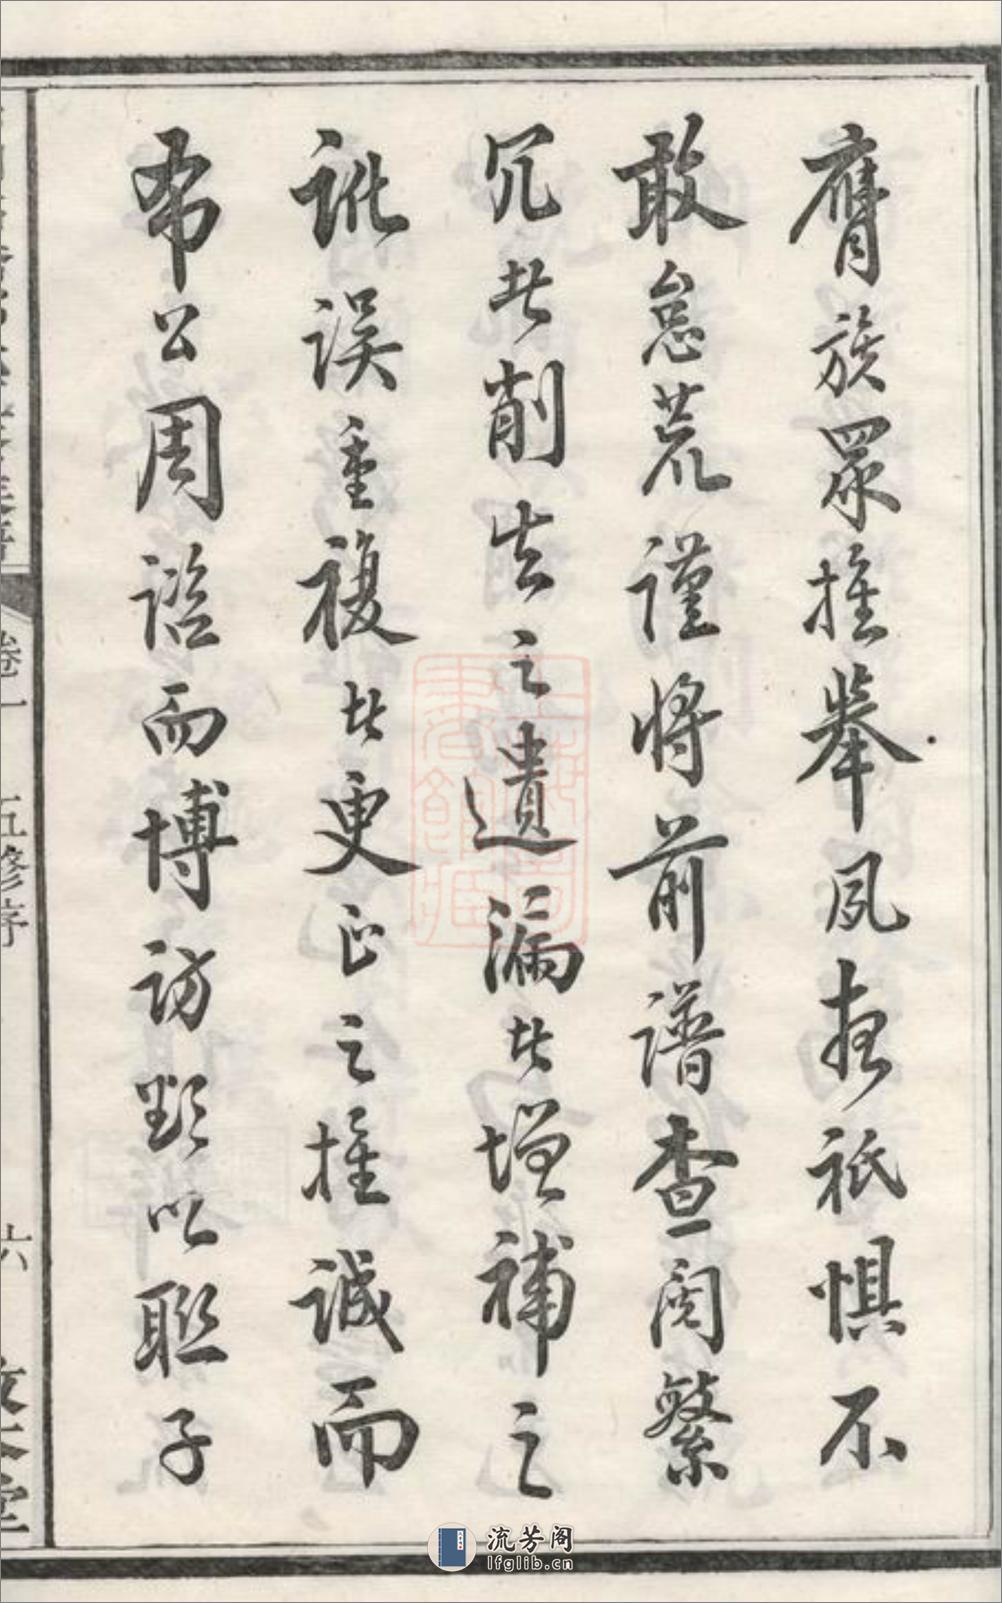 膺族眾推舉夙夜祗懼不
敢怠荒謹將前譜查閱繁
冗者削去之遺漏者增補之
訛誤重複者更正之推誠而
布公周諮而博訪點以聯子
卷一 五修序 六 敦本堂
流芳阁
lfglib.cn